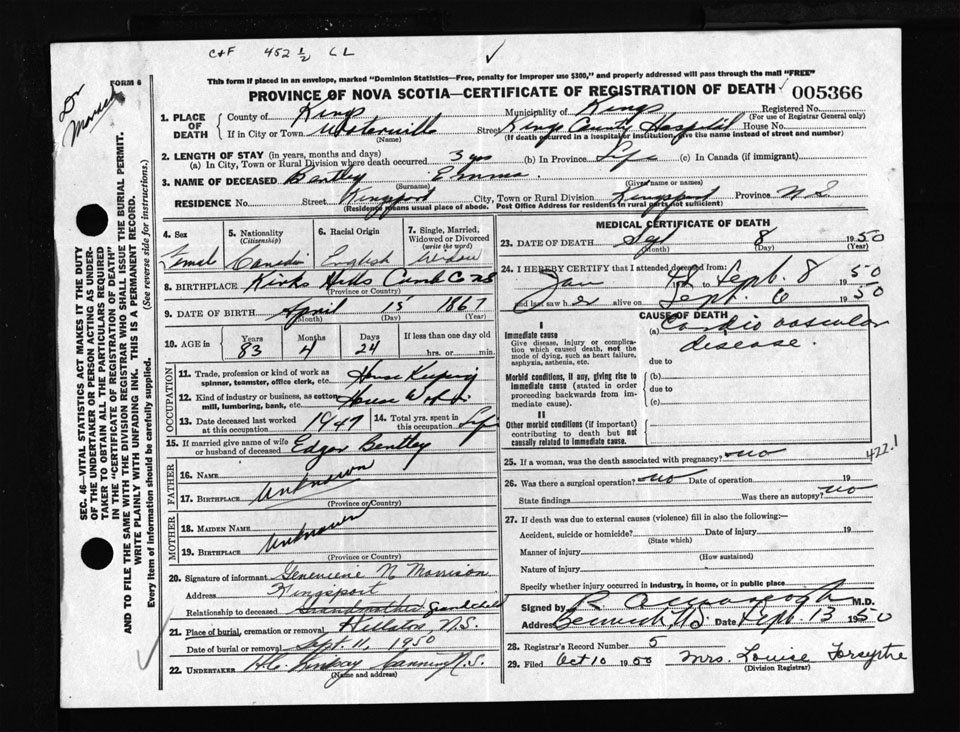 C+F 452 1/2 CL
Dr
FORM 6
This form if placed in an envelope, marked "Dominion Statistics—Free, penalty for improper use $300," and properly addressed will pass through the mail "FREE"
PROVINCE OF NOVA SCOTIA—CERTIFICATE OF REGISTRATION OF DEATH 005366
1. PLACE OF DEATH County of Kings Municipality of Kings Registered No.
(For use of Registrar General only)
If in City or Town Waterville Street Kings County Hospital House No.
(Name) (If death occurred in a hospital or institution, give the name instead of street and number)
2. LENGTH OF STAY (in years, months and days)
(a) In City, Town or Rural Division where death occurred 3 yrs (b) In Province Life (c) In Canada (if immigrant)
3. NAME OF DECEASED Bentley Emma
(Surname) (Given name or names)
RESIDENCE No. Street Kingsport City, Town or Rural Division Kingsport Province N.S.
(Residence means usual place of abode. Post Office Address for residents in rural parts not sufficient)
4. Sex Female
5. Nationality (Citizenship) Canadian
6. Racial Origin English
7. Single, Married, Widowed or Divorced (write the word) Widow
8. BIRTHPLACE Kirks Hills Cumb Co NS
(Province or Country)
9. DATE OF BIRTH April 15 1867
(Month) (Day) (Year)
10. AGE in Years 83 Months 4 Days 24 If less than one day old hrs. or min.
OCCUPATION
11. Trade, profession or kind of work as spinner, teamster, office clerk, etc. House Keeping
12. Kind of industry or business, as cotton mill, lumbering, bank, etc. House Work
13. Date deceased last worked at this occupation 1947
14. Total yrs. spent in this occupation Life
15. If married give name of wife or husband of deceased Edgar Bentley
FATHER
16. Name Unknown
17. Birthplace
(Province or Country)
MOTHER
18. MAIDEN NAME Unknown
19. BIRTHPLACE
(Province or Country)
20. Signature of informant Genevieve N Morrison
Address Kingsport
Relationship to deceased Grandmother Grandchild
21. Place of burial, cremation or removal N.S.
Date of burial or removal Sept. 11, 1950
22. UNDERTAKER Lindsay Canning N.S.
(Name and address)
MEDICAL CERTIFICATE OF DEATH
23. DATE OF DEATH Sept 8 1950
(Month) (Day) (Year)
24. I HEREBY CERTIFY that I attended deceased from:
Jan Sept. 8 1950
and last saw her alive on Sept. 6 1950
CAUSE OF DEATH
I
Immediate cause
Give disease, injury or complication which caused death, not the mode of dying, such as heart failure, asphyxia, asthenia, etc.
(a) Cardio vascular
disease.
due to
Morbid conditions, if any, giving rise to immediate cause (stated in order proceeding backwards from immediate cause).
(b)
due to
(c)
II
Other morbid conditions (if important) contributing to death but not causally related to immediate cause.
422.1
25. If a woman, was the death associated with pregnancy? no
26. Was there a surgical operation? no Date of operation 19
State findings Was there an autopsy? no
27. If death was due to external causes (violence) fill in also the following:—
Accident, suicide or homicide? Date of injury 19
(State which)
Manner of injury
(How sustained)
Nature of injury
Specify whether injury occurred in industry, in home, or in public place
Signed by M.D.
Address Berwick, N.S. Date Sept. 13 1950
28. Registrar's Record Number 5
29. Filed Oct 10 1950 Mrs. Louise Forsythe
(Division Registrar)
SEC. 46—VITAL STATISTICS ACT MAKES IT THE DUTY
OF THE UNDERTAKER OR PERSON ACTING AS UNDER-
TAKER TO OBTAIN ALL THE PARTICULARS REQUIRED
IN THE "CERTIFICATE OF REGISTRATION OF DEATH"
AND TO FILE THE SAME WITH THE DIVISION REGISTRAR WHO SHALL ISSUE THE BURIAL PERMIT.
WRITE PLAINLY WITH UNFADING INK. THIS IS A PERMANENT RECORD.
Every item of information should be carefully supplied. (See reverse side for instructions.)